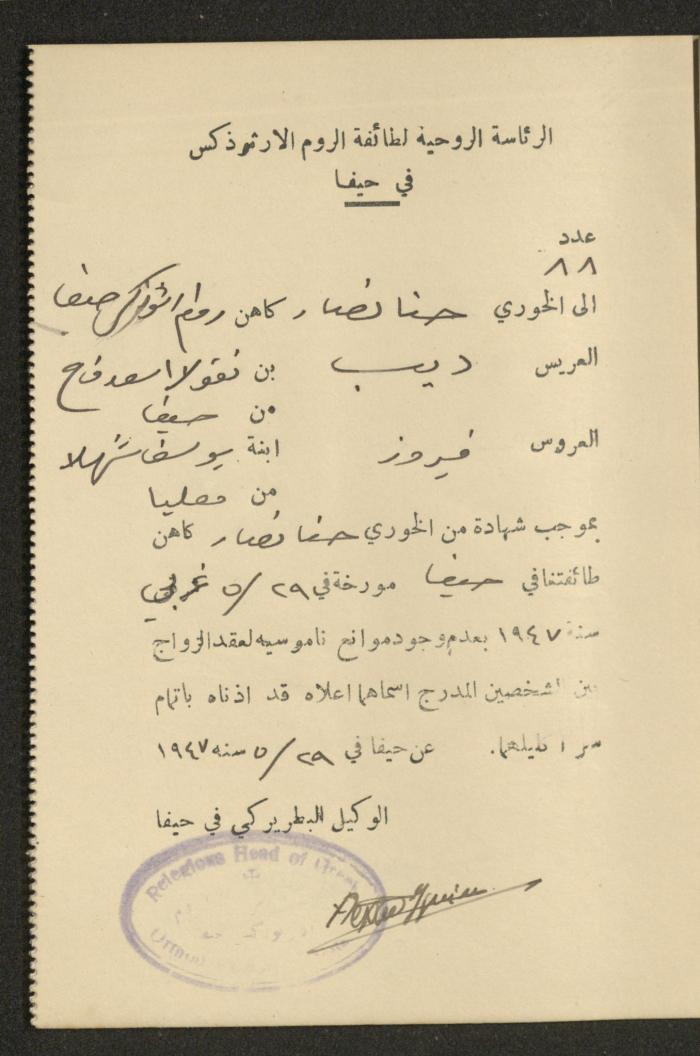 الرئاسة الروحية لطائفة الروم الارثوذكس
في حيفا
عدد
٨٨
الى الخوري حنا نصار كاهن روم ارثوذكس حيفا
العريس ديب بن نقولا اسعد فرح
من حيفا
العروس فيروز ابنة يوسف شهلا
من معليا
بموجب شهادة من الخوري حنا نصار كاهن
طائفتنا في حيفا مورخة في ٢٩/٥ غربي
سنة ١٩٤٧ بعدم وجود موانع ناموسيه لعقد الزواج
بين الشخصين المدرج اسماهما اعلاه قد اذناه باتمام
سر اكليلهما. عن حيفا في ٢٩/٥ سنه ١٩٤٧
الوكيل البطريركي في حيفا
Religious Head of Greek